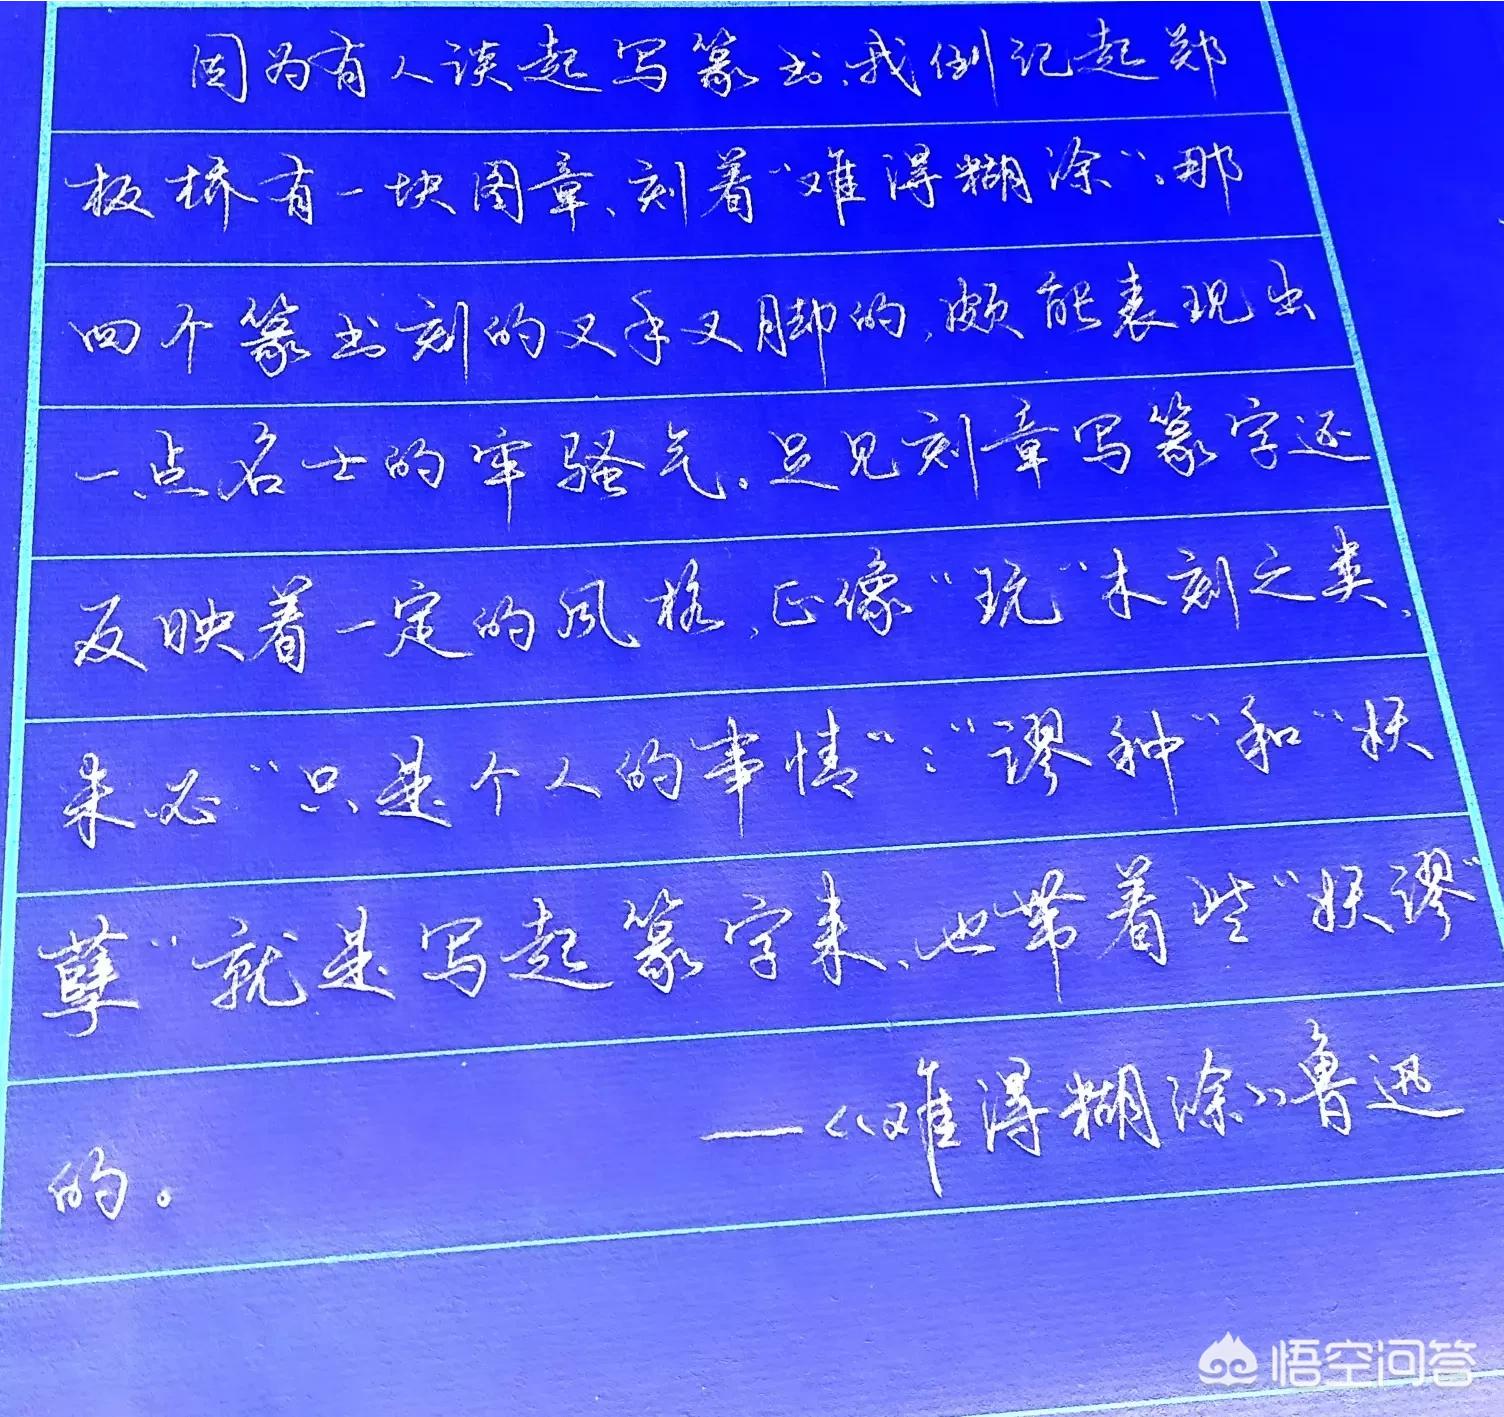 因为有人谈起写篆书、我倒记起郑
板桥有一块图章、刻着“难得糊涂”。那
四个篆书刻的又手又脚的，颇能表现出
一点名士的牢骚气。足见刻章写篆字还
反映着一定的风格，正像“玩”木刻之类，
未必“只是个人的事情”：“谬种”和“妖
孽”就是写起篆字来、也带着些“妖谬”
的。
—《难得糊涂》鲁迅
悟空问答